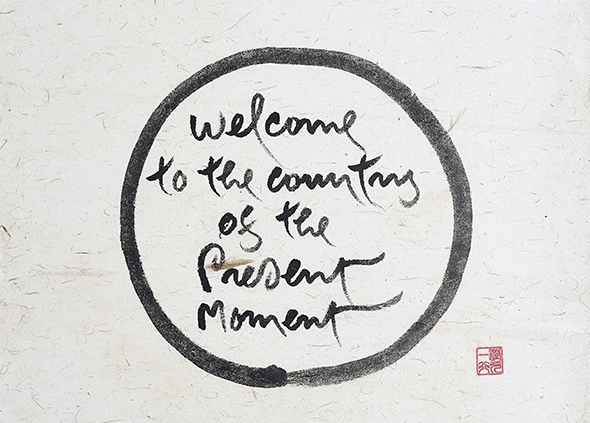 welcome
to the country
of the
Present
Moment